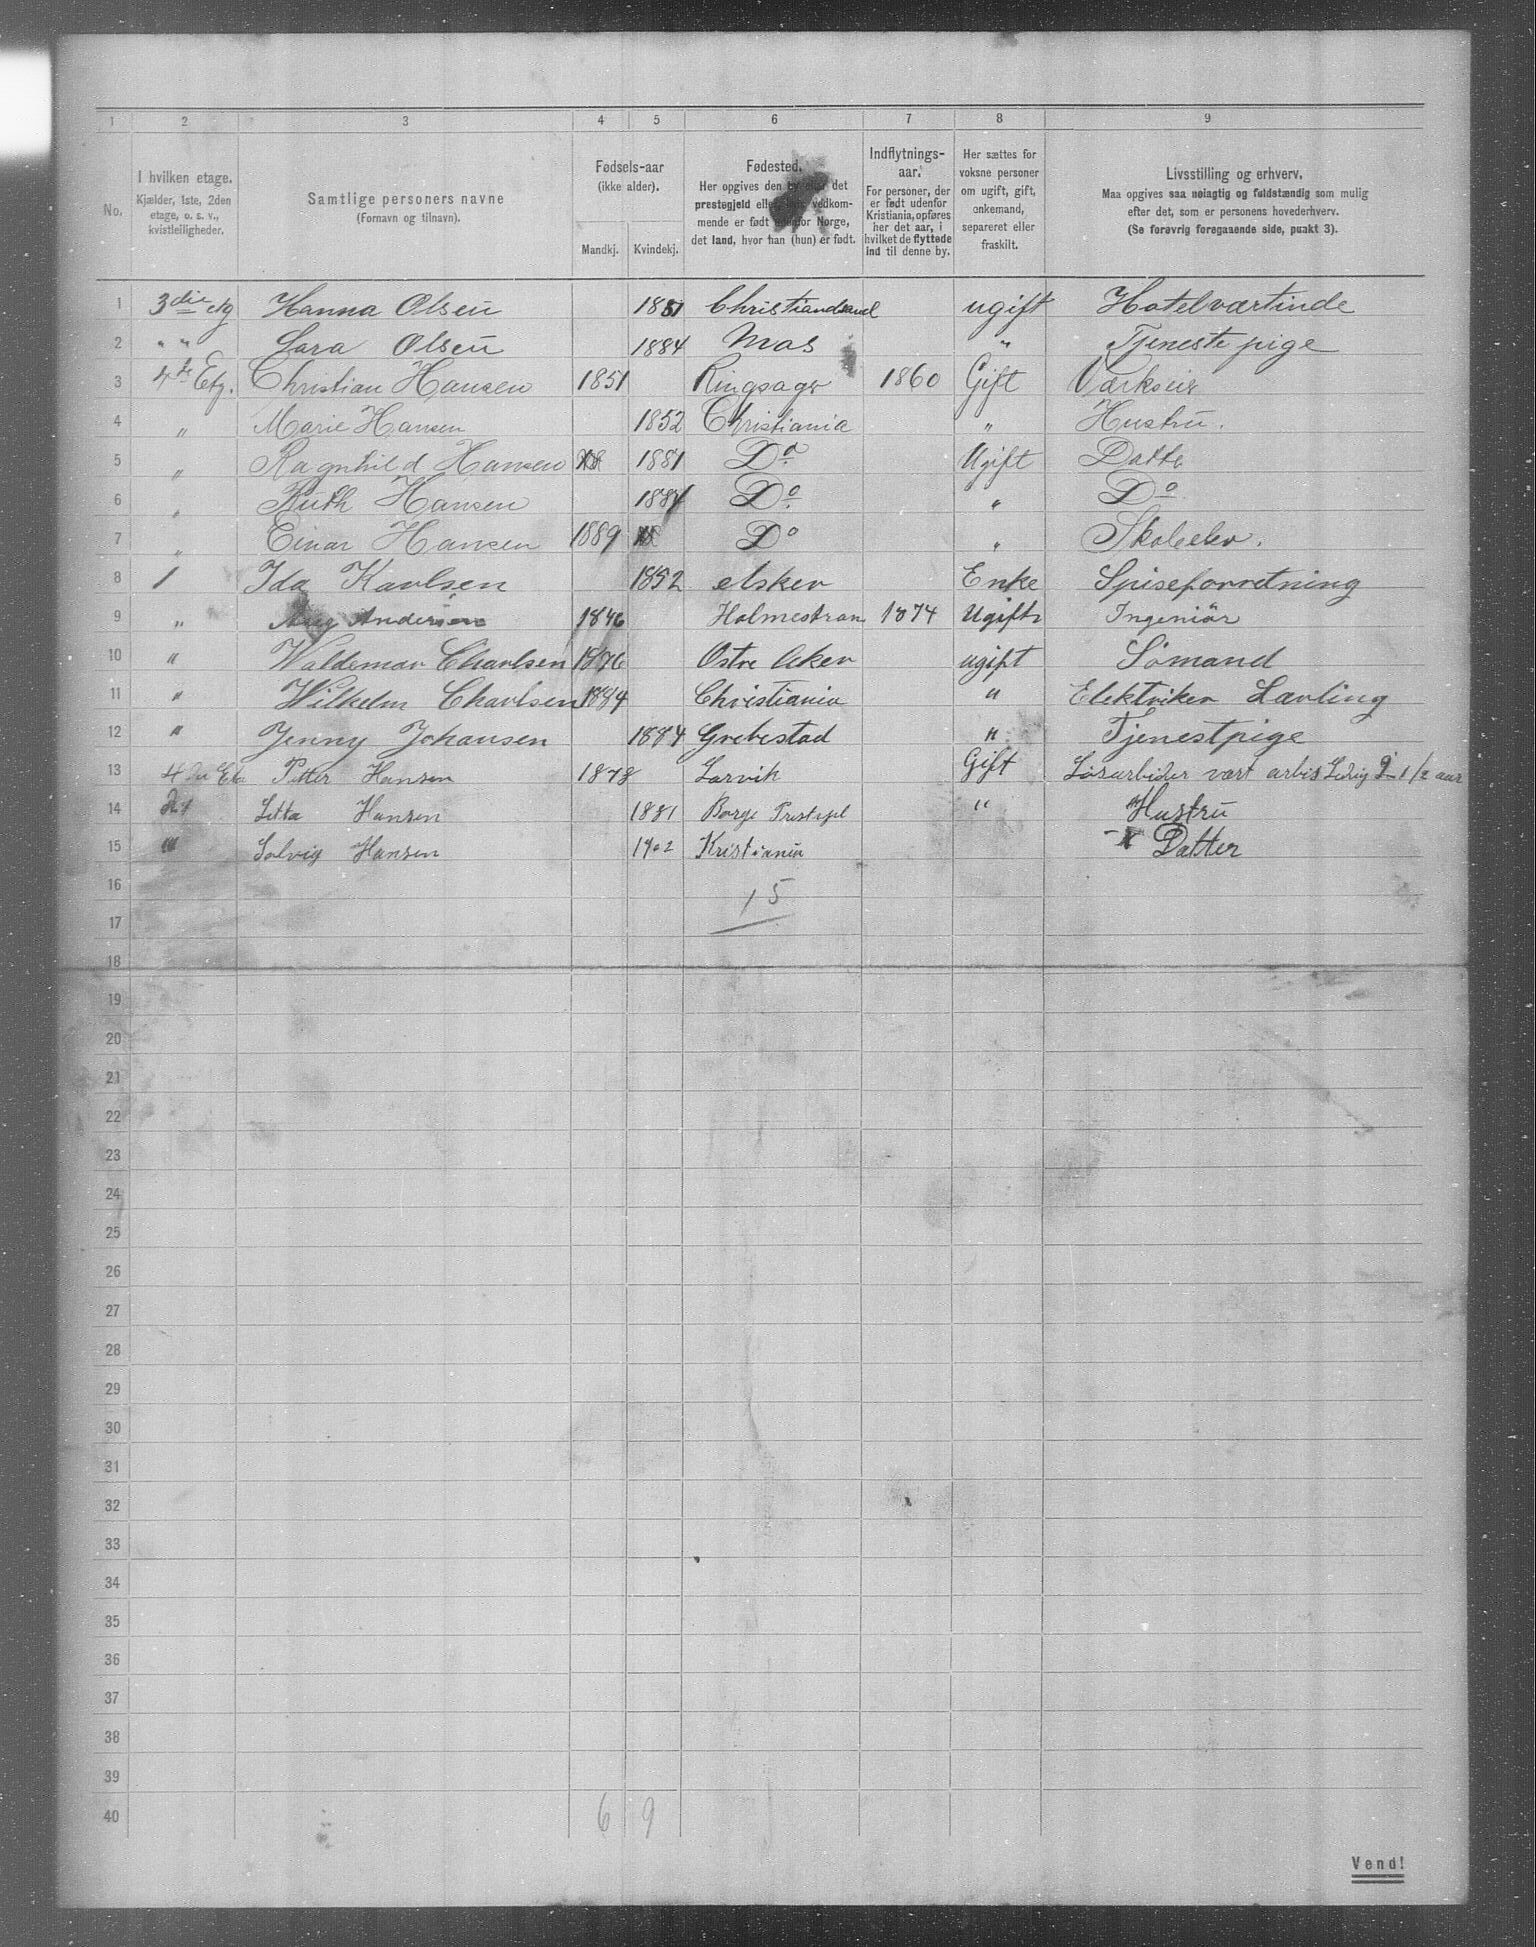 1 2 3 4 5 6 7 8 9
No.
I hvilken etage.
Kjælder, 1ste, 2den
etage, o. s. v.,
kvistleiligheder.
Samtlige personers navne
(Fornavn og tilnavn).
Fødsels-aar
(ikke alder).
Mandkj. Kvindekj.
Fødested.
Her opgives den by eller det
prestegjeld eller, hvis vedkom-
mende er født udenfor Norge,
det land, hvor han (hun) er født.
Indflytnings-
aar.
For personer, der
er født udenfor
Kristiania, opføres
her det aar, i
hvilket de flyttede
ind til denne by.
Her sættes for
voksne personer
om ugift, gift,
enkemand,
separeret eller
fraskilt.
Livsstilling og erhverv.
Maa opgives saa nøiagtig og fuldstændig som mulig
efter det, som er personens hovederhverv.
(Se forøvrig foregaaende side, punkt 3).
1 3die etg Hanna Olsen 1881 Christiandsand ugift Hotelværtinde
2 " " Sara Olsen 1884 Mos " Tjeneste pige
3 4de Etg. Christian Hansen 1851 Ringsager 1860 Gift Værkseir
4 " Marie Hansen 1852 Christiania " Hustru.
5 " Ragnhild Hansen 1881 Do Ugift Datte
6 " Ruth Hansen 1884 Do " Do
7 " Einar Hansen 1889 Do " Skoleelev.
8 1 Ida Karlsen 1852 elsker Enke Spiseforretning
9 " Andersen 1846 Holmestran 1874 Ugift Ingeniör
10 " Waldemar Charlsen 1876 Ostre Aker ugift Sømand
11 " Wilhelm Charlsen 1884 Christiania " Elektriker Lærling
12 " Jenny Johansen 1884 Grebestad " Tjenestpige
13 4de Eta Petter Hansen 1878 Larvik Gift Løsarbider vært arbis Ledig 1 1/2 aar
14 Hansen 1881 Borge Prestegl " Hustru
15 " Solvig Hansen 1902 Kristiania Datter
16
15
17
18
19
20
21
22
23
24
25
26
27
28
29
30
31
32
33
34
35
36
37
38
39
40 6 9
Vend!